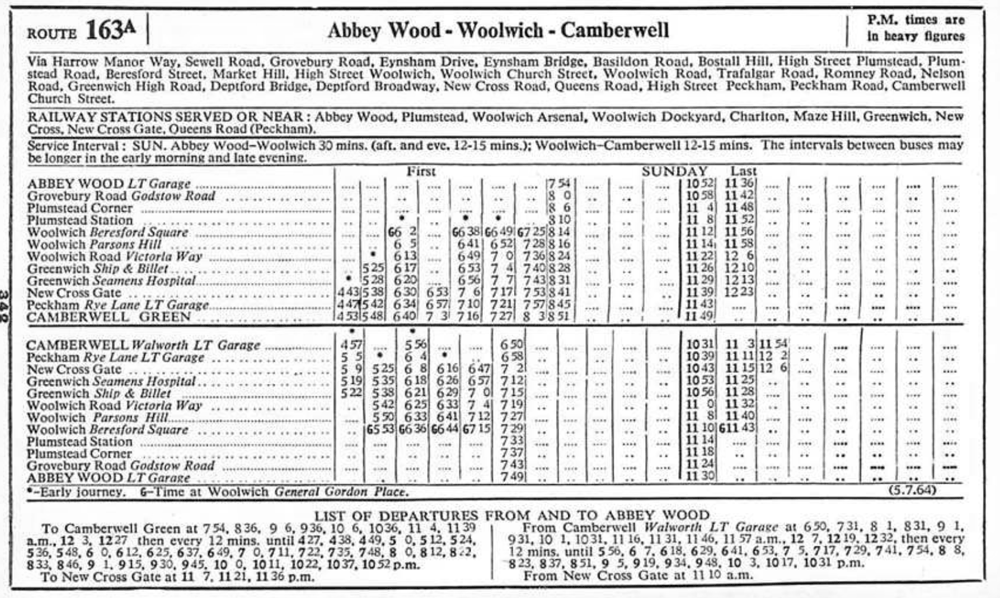 ROUTE 163A
Abbey Wood - Woolwich - Camberwell
P.M. times are
in heavy figures
Via Harrow Manor Way, Sewell Road, Grovebury Road, Eynsham Drive, Eynsham Bridge, Basildon Road, Bostall Hill, High Street Plumstead, Plum-
stead Road, Beresford Street, Market Hill, High Street Woolwich, Woolwich Church Street, Woolwich Road, Trafalgar Road, Romney Road, Nelson
Road, Greenwich High Road, Deptford Bridge, Deptford Broadway, New Cross Road, Queens Road, High Street Peckham, Peckham Road, Camberwell
Church Street.
RAILWAY STATIONS SERVED OR NEAR: Abbey Wood, Plumstead, Woolwich Arsenal, Woolwich Dockyard, Charlton, Maze Hill, Greenwich, New
Cross, New Cross Gate, Queens Road (Peckham).
Service Interval: SUN. Abbey Wood–Woolwich 30 mins. (aft. and eve. 12-15 mins.); Woolwich–Camberwell 12-15 mins. The intervals between buses may
be longer in the early morning and late evening.
First SUNDAY Last
ABBEY WOOD LT Garage 7 54 10 52 11 36
Grovebury Road Godstow Road 8 0 10 58 11 42
Plumstead Corner 8 6 11 4 11 48
Plumstead Station * * * 8 10 11 8 11 52
Woolwich Beresford Square G6 2 G6 38 G6 49 G7 25 8 14 11 12 11 56
Woolwich Parsons Hill 6 5 6 41 6 52 7 28 8 16 11 14 11 58
Woolwich Road Victoria Way * 6 13 6 49 7 0 7 36 8 24 11 22 12 6
Greenwich Ship & Billet 5 25 6 17 6 53 7 4 7 40 8 28 11 26 12 10
Greenwich Seamens Hospital * 5 28 6 20 6 56 7 7 7 43 8 31 11 29 12 13
New Cross Gate 4 43 5 38 6 30 6 53 7 6 7 17 7 53 8 41 11 39 12 23
Peckham Rye Lane LT Garage 4 47 5 42 6 34 6 57 7 10 7 21 7 57 8 45 11 43
CAMBERWELL GREEN 4 53 5 48 6 40 7 3 7 16 7 27 8 3 8 51 11 49
* *
CAMBERWELL Walworth LT Garage 4 57 5 56 6 50 10 31 11 3 11 54
Peckham Rye Lane LT Garage 5 5 * 6 4 * 6 58 10 39 11 11 12 2
New Cross Gate 5 9 5 25 6 8 6 16 6 47 7 2 10 43 11 15 12 6
Greenwich Seamens Hospital 5 19 5 35 6 18 6 26 6 57 7 12 10 53 11 25
Greenwich Ship & Billet 5 22 5 38 6 21 6 29 7 0 7 15 10 56 11 28
Woolwich Road Victoria Way 5 42 6 25 6 33 7 4 7 19 11 0 11 32
Woolwich Parsons Hill 5 50 6 33 6 41 7 12 7 27 11 8 11 40
Woolwich Beresford Square G5 53 G6 36 G6 44 G7 15 7 29 11 10 G11 43
Plumstead Station 7 33 11 14
Plumstead Corner 7 37 11 18
Grovebury Road Godstow Road 7 43 11 24
ABBEY WOOD LT Garage 7 49 11 30
*–Early journey. G–Time at Woolwich General Gordon Place. (5.7.64)
LIST OF DEPARTURES FROM AND TO ABBEY WOOD
To Camberwell Green at 7 54, 8 36, 9 6, 9 36, 10 6, 10 36, 11 4, 11 39
a.m., 12 3, 12 27 then every 12 mins. until 4 27, 4 38, 4 49, 5 0, 5 12, 5 24,
5 36, 5 48, 6 0, 6 12, 6 25, 6 37, 6 49, 7 0, 7 11, 7 22, 7 35, 7 48, 8 0, 8 12, 8 22,
8 33, 8 46, 9 1, 9 15, 9 30, 9 45, 10 0, 10 11, 10 22, 10 37, 10 52 p.m.
To New Cross Gate at 11 7, 11 21, 11 36 p.m.
From Camberwell Walworth LT Garage at 6 50, 7 31, 8 1, 8 31, 9 1,
9 31, 10 1, 10 31, 11 16, 11 31, 11 46, 11 57 a.m., 12 7, 12 19, 12 32, then every
12 mins. until 5 56, 6 7, 6 18, 6 29, 6 41, 6 53, 7 5, 7 17, 7 29, 7 41, 7 54, 8 8,
8 23, 8 37, 8 51, 9 5, 9 19, 9 34, 9 48, 10 3, 10 17, 10 31 p.m.
From New Cross Gate at 11 10 a.m.